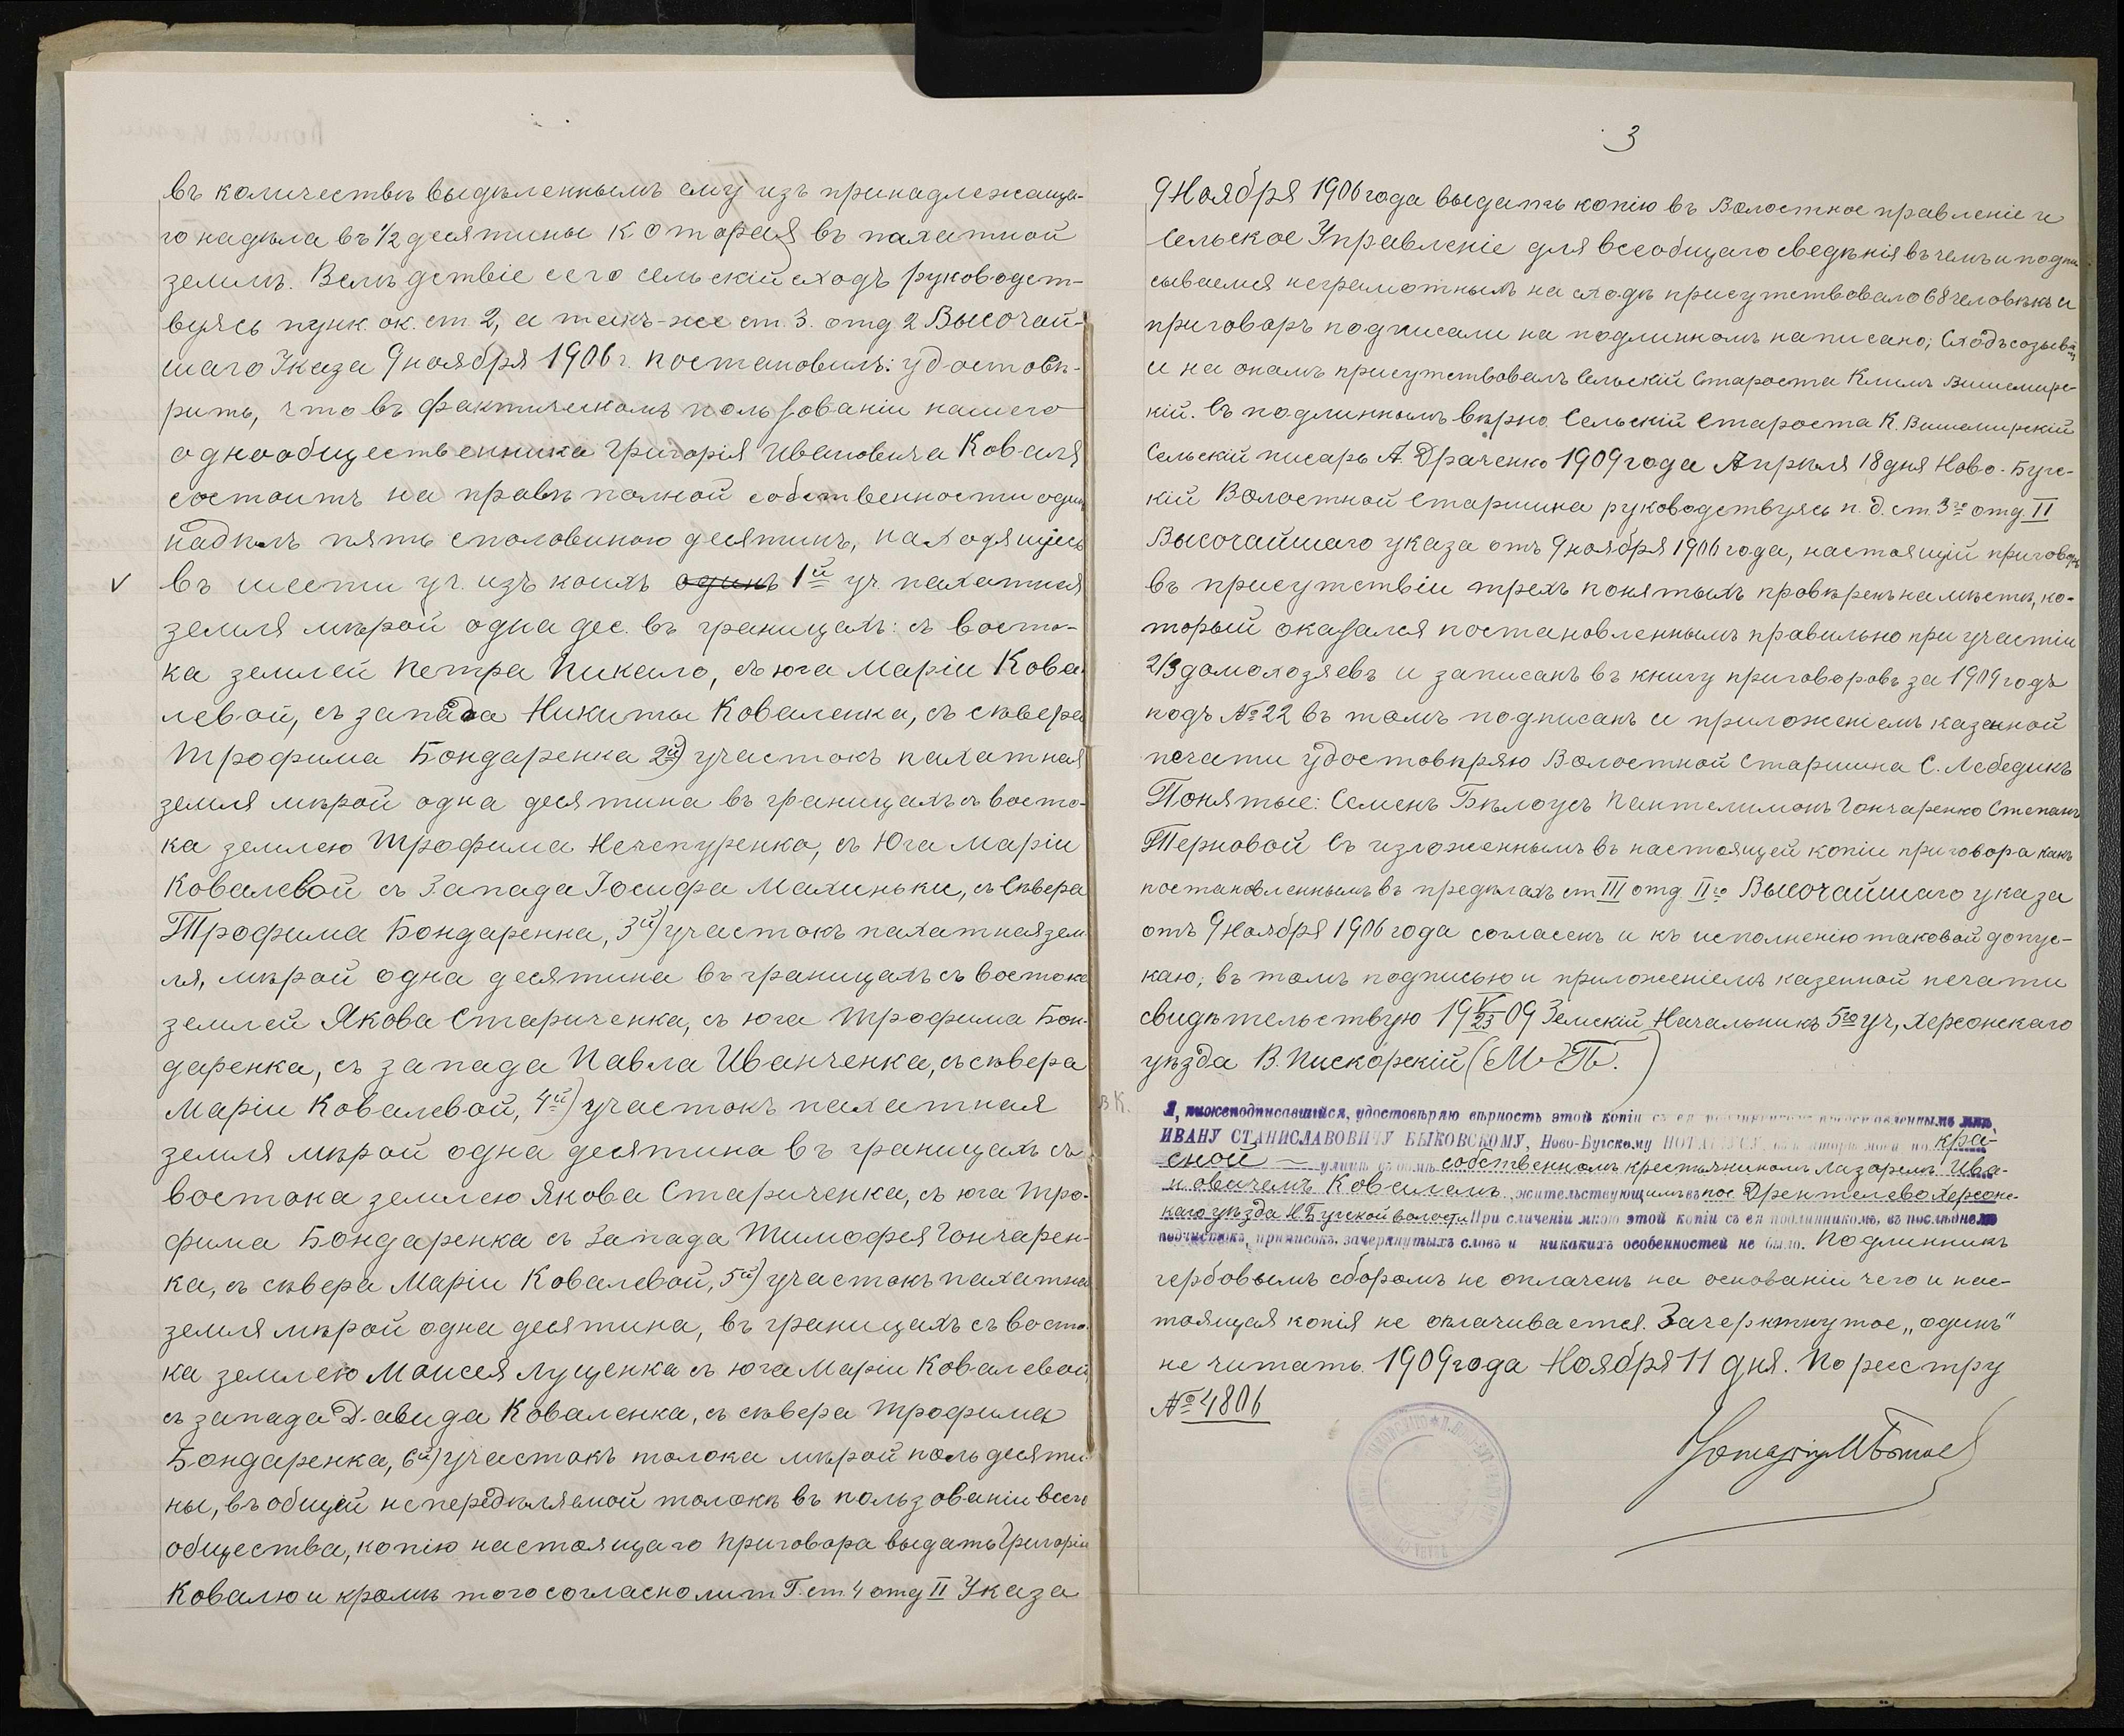 въ количествѣ выдѣленнымъ ему изъ принадлежаща-
го надѣла въ 1/2 десятины которая въ пахатной
землѣ. Вслѣдствіе сего сельскій сходъ руководст-
вуясь пунк. ок. ст. 2, а такъ-же ст. 3. отд 2 Высочай-
шаго Указа 9 ноября 1906 г. постановилъ: удостовѣ-
рить, что въ фактическомъ пользованіи нашего
однообщественника Григорія Ивановича Коваля
состоитъ на правѣ полной собственности одинъ
надѣлъ пять споловиною десятинъ, находящійся
въ шести уч. изъ коихъ одинъ 1й уч. пахатная
земля мѣрой одна дес. въ границахъ: съ восто-
ка землей Петра Пикало, съ юга Маріи Кова-
левой, съ запада Никиты Коваленка, съ сѣвера
Трофима Бондаренка 2й) участокъ пахатная
земля мѣрой одна десятина въ границахъ съ восто-
ка землею Трофима Нечепуренка, съ Юга Маріи
Ковалевой съ Запада Іосифа Махиньки, съ Сѣвера
Трофима Бондаренка, 3й) участокъ пахатная зем-
ля, мѣрой одна десятина въ границахъ съ востока
землей Якова Стариченка, съ юга Трофима Бон-
даренка, съ запада Павла Иванченка, съ сѣвера
Маріи Ковалевой, 4й) участокъ пахатная
земля мѣрой одна десятина въ границахъ съ
востока землею Якова Стариченка, съ юга Тро-
фима Бондаренка съ Запада Тимофея Гончарен-
ка, съ сѣвера Маріи Ковалевой, 5й) участокъ пахатная
земля мѣрой одна десятина, въ границахъ съ восто-
ка землею Моисея Лущенка съ юга Маріи Ковалевой,
съ запада Давида Коваленка, съ сѣвера Трофима
Бондаренка, 6й) участокъ толока мѣрой полъ десяти-
ны, въ общей непередѣляемой толокѣ въ пользованіи всего
общества, копію настоящаго приговора выдать Григорію
Ковалю и кромѣ того согласно лит Г. ст. 4 отд II Указа
3
9 Ноября 1906 года выдать копію въ Волостное правленіе и
Сельское Управленіе для всеобщаго сведѣнія въ чемъ и подпи
сываемся неграмотнымъ на сходѣ присутствовало 68 человѣкъ и
приговоръ подписали на подлинномъ написано; Сходъ созывалъ
и на ономъ присутствовалъ Сельскій Староста Климъ Вишемирс-
кій. Съ подлиннымъ вѣрно. Сельскій Староста К. Вишемирскій
Сельскій писарь А. Драченко 1909 года Апрѣля 18 дня Ново-Бугс-
кій Волостной Старшина руководствуясь п. д. ст. 3го отд. II
Высочайшаго указа отъ 9 ноября 1906 года, настоящій приговоръ
въ присутствіи трехъ понятыхъ провѣренъ на мѣстѣ, ко-
торый оказался постановленнымъ правильно при участіи
2/3 домохозяевъ и записанъ въ книгу приговоровъ за 1909 годъ
подъ № 22 въ томъ подписанъ и приложеніемъ казенной
печати удостовѣряю Волостной Старшина С. Лебединъ
Понятые: Семенъ Бѣлоусъ Пантелимонъ Гончаренко Степанъ
Терновой Съ изложеннымъ въ настоящей копіи приговора какъ
постановленнымъ въ предѣлахъ ст III отд. IIго Высочайшаго указа
отъ 9 Ноября 1906 года согласенъ и къ исполненію таковой допус-
каю; въ томъ подписью и приложеніемъ казенной печати
свидѣтельствую 19 V/23 09 Земскій Начальникъ 5го уч, Херсонскаго
уѣзда В. Пискорскій (М. П.)
Я, нижеподписавшійся, удостовѣряю вѣрность этой копіи съ ея подлинникомъ представленнымъ мнѣ,
ИВАНУ СТАНИСЛАВОВИЧУ БЫКОВСКОМУ, Ново-Бугскому НОТАРІУСУ, въ контору мою по Кра-
сной улицѣ въ домѣ собственномъ крестьяниномъ Лазаремъ Ива-
новичемъ Ковалемъ, жительствующимъ въ пос. Дрентелево Херсонс-
каго уѣзда Н.Бугской волости. При сличеніи мною этой копіи съ ея подлинникомъ, въ послѣднемъ
подчистокъ, приписокъ, зачеркнутыхъ словъ и никакихъ особенностей не было. Подлинникъ
гербовымъ сборомъ не оплаченъ на основаніи чего и нас-
тоящая копія не оплачивается. Зачеркнутое „одинъ"
не читать. 1909 года Ноября 11 дня. По реестру
№ 4806